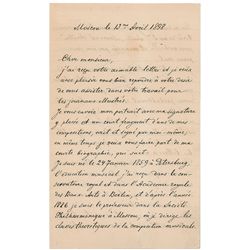 Moscou le 13me Avril 1898
Cher monsieur,
j'ai reçu votre aimable lettre et je viens
avec plaisir vous bien répondre à votre désir
de vous assister dans votre travail pour
les journaux illustrés.
Je vous envoie mon portrait avec ma signature
y placée et un court fragment d'une de mes
compositions, noté et signé par moi-même,
en même temps je vous fais part de ma
courte biographie, qui suit:
Je suis né le 29 Janvier 1859 à Petersbourg.
L'éducation musical j'ai reçu dans le con-
servatoire royal et dans l'Académie royale
des Beaux Arts à Berlin, et d'après l'année
1886 je suis le professeur dans la Société
Philharmonique à Moscou, où je dirige les
classes théoriques de la composition musicale.